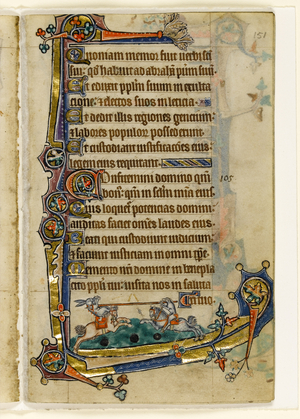 151
Quoniam memor fuit verbi sci
sui: qd habuit ad abrahā puerū suū.
Et eduxit ppłm suum in exulta
cione: ⁊ electos suos in leticia.
Et dedit illis regiones gencium:
⁊ labores populoꝝ possederunt.
Ut custodiant iustificaciones eius:
⁊ legem eius requirant.
Confitemini domino qm̄ 105
bon': qm̄ in sclm̄ mīa eius.
Quis loquet' potencias domini:
auditas faciet omnes laudes eius.
Beati qui custodiunt iudicium:
⁊ faciunt iusticiam in omni tp̄re.
Memento nr̄i domine in beneplā
cito ppłi tui: visita nos in saluta
ri tuo.